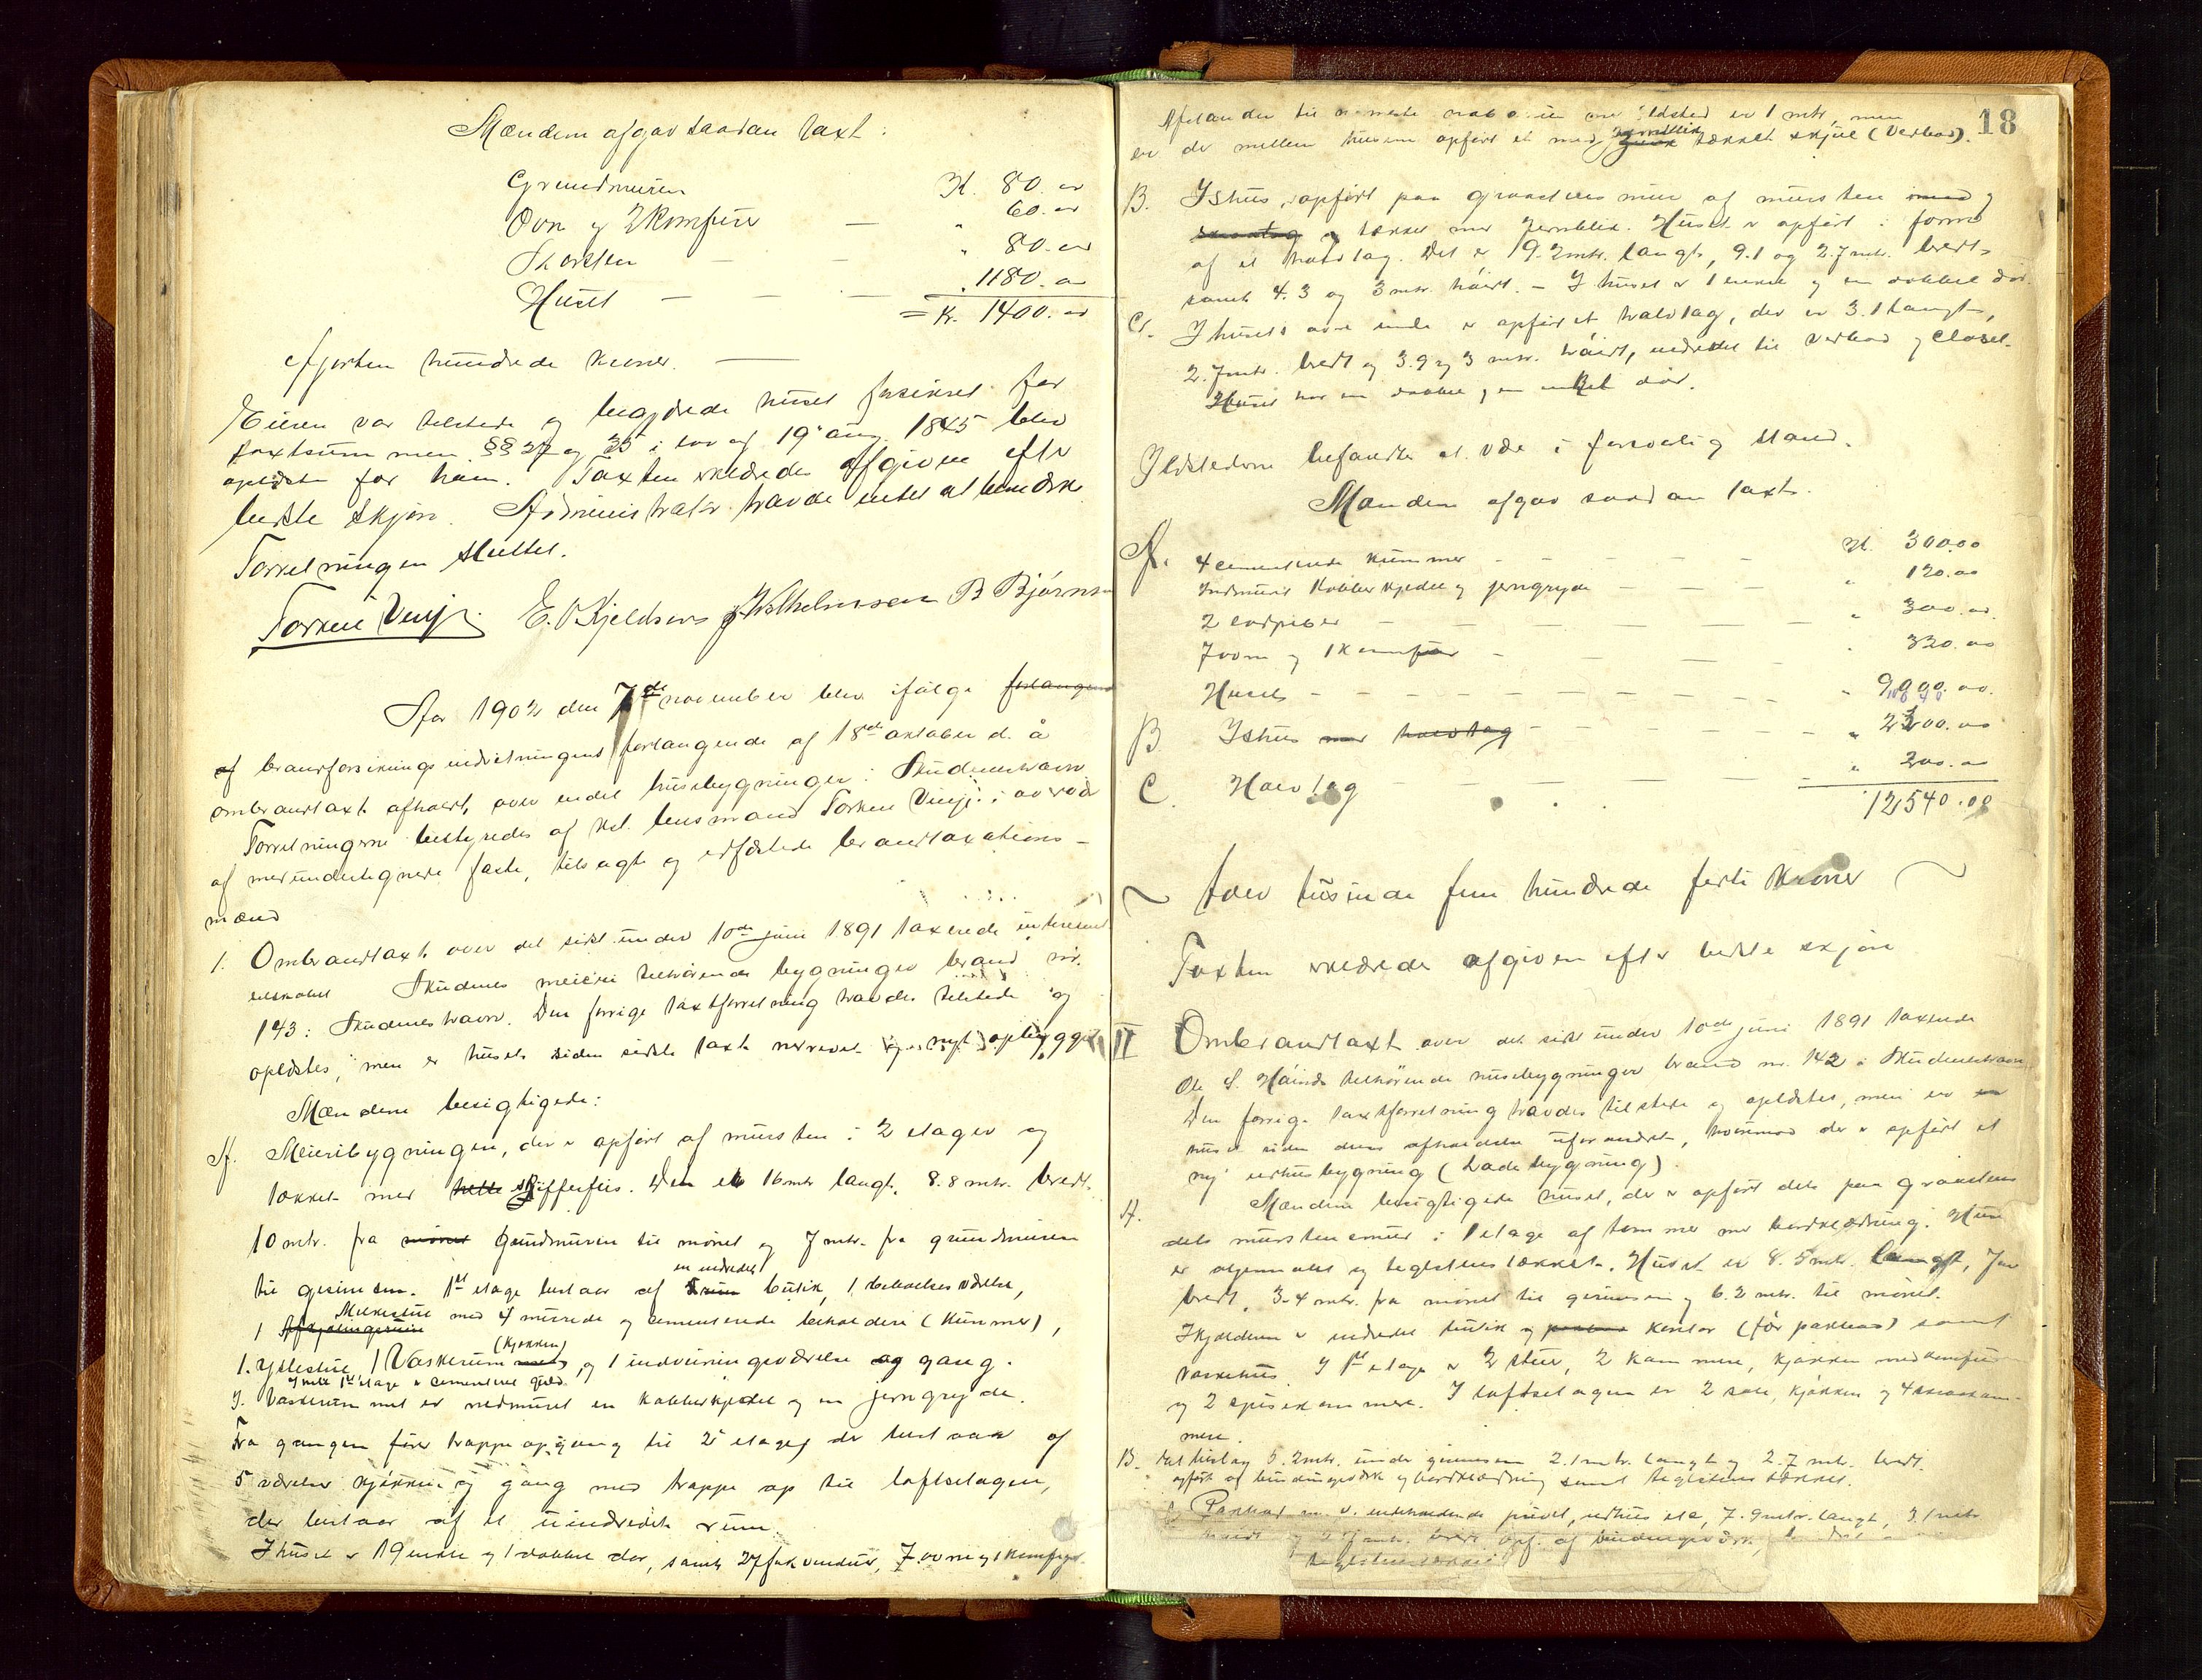 Mændene afgav saadan taxt:
Grundmuren Kr. 80.00
Ovn og 2 Komfure — " 60.00
Skorsten — — " 80.00
Huset — — — " 1180.00
= Kr. 1400.00
Fjorten hundrede kroner. —
Eieren var tilstede og begjærede huset forsikret for
taxtsummen. §§ 27 og 35 i lov af 19 aug. 1845 blev
oplæst for ham. Taxten erklæredes afgiven efter
bedste skjøn. Administrator havde intet at bemærke
Forretningen sluttet.
Torkel Vinje. E. O Kjeldsen J Wilhelmsen B Bjørnsen
Aar 1902 den 7de november blev ifølge forlangend
af brandforsikringsindretningens forlangende af 18de oktober d. å
ombrandtaxt afholdt over endel husebygninger i Skudeneshavn
Forretningerne bestyredes af kst. lensmand Torkel Vinje i overvær
af medundertegnede faste, tilsagte og edfæstede brandtaxations-
mænd
1. Ombrandtaxt over det sidst under 10de juni 1891 taxerede interesent
selskabet Skudenes meieri tilhørende bygninger brand nr.
143 i Skudeneshavn. Den forrige taxtforretning havdes tilstede og
oplæstes, men er husets siden sidste taxt nedrevet og nyt opbygget
Mændene besigtigede:
A. Meieribygningen, der er opført af mursten i 2 etager og
tækket med helle skifferflis. Den er 16 mtr langt, 8.8 mtr. bredt.
10 mtr. fra mønet Grundmuren til mønet og 7 mtr. fra grundmuren
til gesimsen. 1st etage bestaar af en indredet butik, 1 betholesværelse,
1 Afkjølingsrum Melkestue med 4 murede og cementerede beholdere (Kummer),
1. Ystestue, 1 Vaskerum (Kjøkken) og 1 indveiningsværelse og gang.
I hele 1st etage er cementeret gulv
I Vaskerummet er nedmuret en kobberkjedel og en jerngryde.
Fra gangen fører trappeopgang til 2de etage, der bestaar af
5 værelser kjøkken og gang med trappe op til loftsetagen,
der bestaar af et uindredet rum.
I huset er 19 enkle og 1 dobbel dør, samt 27 fag vinduer, 7 ovne og 1 komfyr.
18
Afstanden til nærmeste nabo ildsted er 1 mtr, men
er der mellem husene opført et med jernblik tækket skjul (Vedbod).
B. Ishus, opført paa graastens mur af mursten med
og tækket med jernblik. Huset er opført i form
af et halvtag. Det er 19.2 mtr. langt, 9.1 og 2.7 mtr. bredt
samt 4.3 og 3 mtr. høit. — I huset er 1 enkel og en dobbel dør.
C. I husets øvre ende er opført et halvtag, der er 3.1 langt,
2.7 mtr. bredt og 3.9 og 3 mtr. høit, indredet til vedbod og closet.
Huset har en dobbel og en enkel dør.
Ildstederne befandtes at være i forsvarlig stand.
Mændene afgav saadan taxt.
A. 4 cementerede kummer — — — Kr. 300.00
Indmuret Kobberkjedel og jerngryde — — " 120.00
2 lodpiber — — — — " 300.00
7 ovne og 1 Komfur — — — " 320.00
Huset — — — — — " 9000.00.
B. Ishus med halvtag — — — " 2200.00
C. Halvtag — — — " 300.00
12,540.00
~ tolv tusinde fem hundrede førti kroner ~
Taxten erklæredes afgiven efter bedste skjøn
II Ombrandtaxt over det sidst under 10de juni 1891 taxerede
Ole S. Høines tilhørende husebygninger brand nr. 142 i Skudeneshavn
Den forrige taxtforretning havdes tilstede og oplæstes, men er
huset siden dens afholdelse uforandret, hvorimod der er opført et
ny udhusbygning (Ladebygning).
A. Mændene besigtigede huset, der er opført dels paa graastens
dels murstensmur i 1 etage af tømmer med bordklædning. Huset
er oljemalet og teglstenstækket. Huset er 8.5 mtr. langt, 7
bredt, 3.4 mtr. fra mønet til gesimsen og 6.2 mtr. til mønet.
I kjælderen er indredet butik og kontor (før pakbod) samt
vaskehus. I 1st etage er 2 stuer, 2 kammere, kjøkken med komfur
og 2 spisekammere. I loftsetagen er 2 sale, kjøkken og 4 sovekam-
mere.
B. Halvtag 5.2 mtr. under gesimsen 2.1 mtr. langt og 2.7 mtr. bredt
opført af bindingsværk og bordklædning samt teglstens tækket.
C Pakbod m. v. indeholdende privet, udhus etc, 7.9 mtr. langt, 3.1 mtr
bredt opf. af bindingsværk,
teglstenstækket